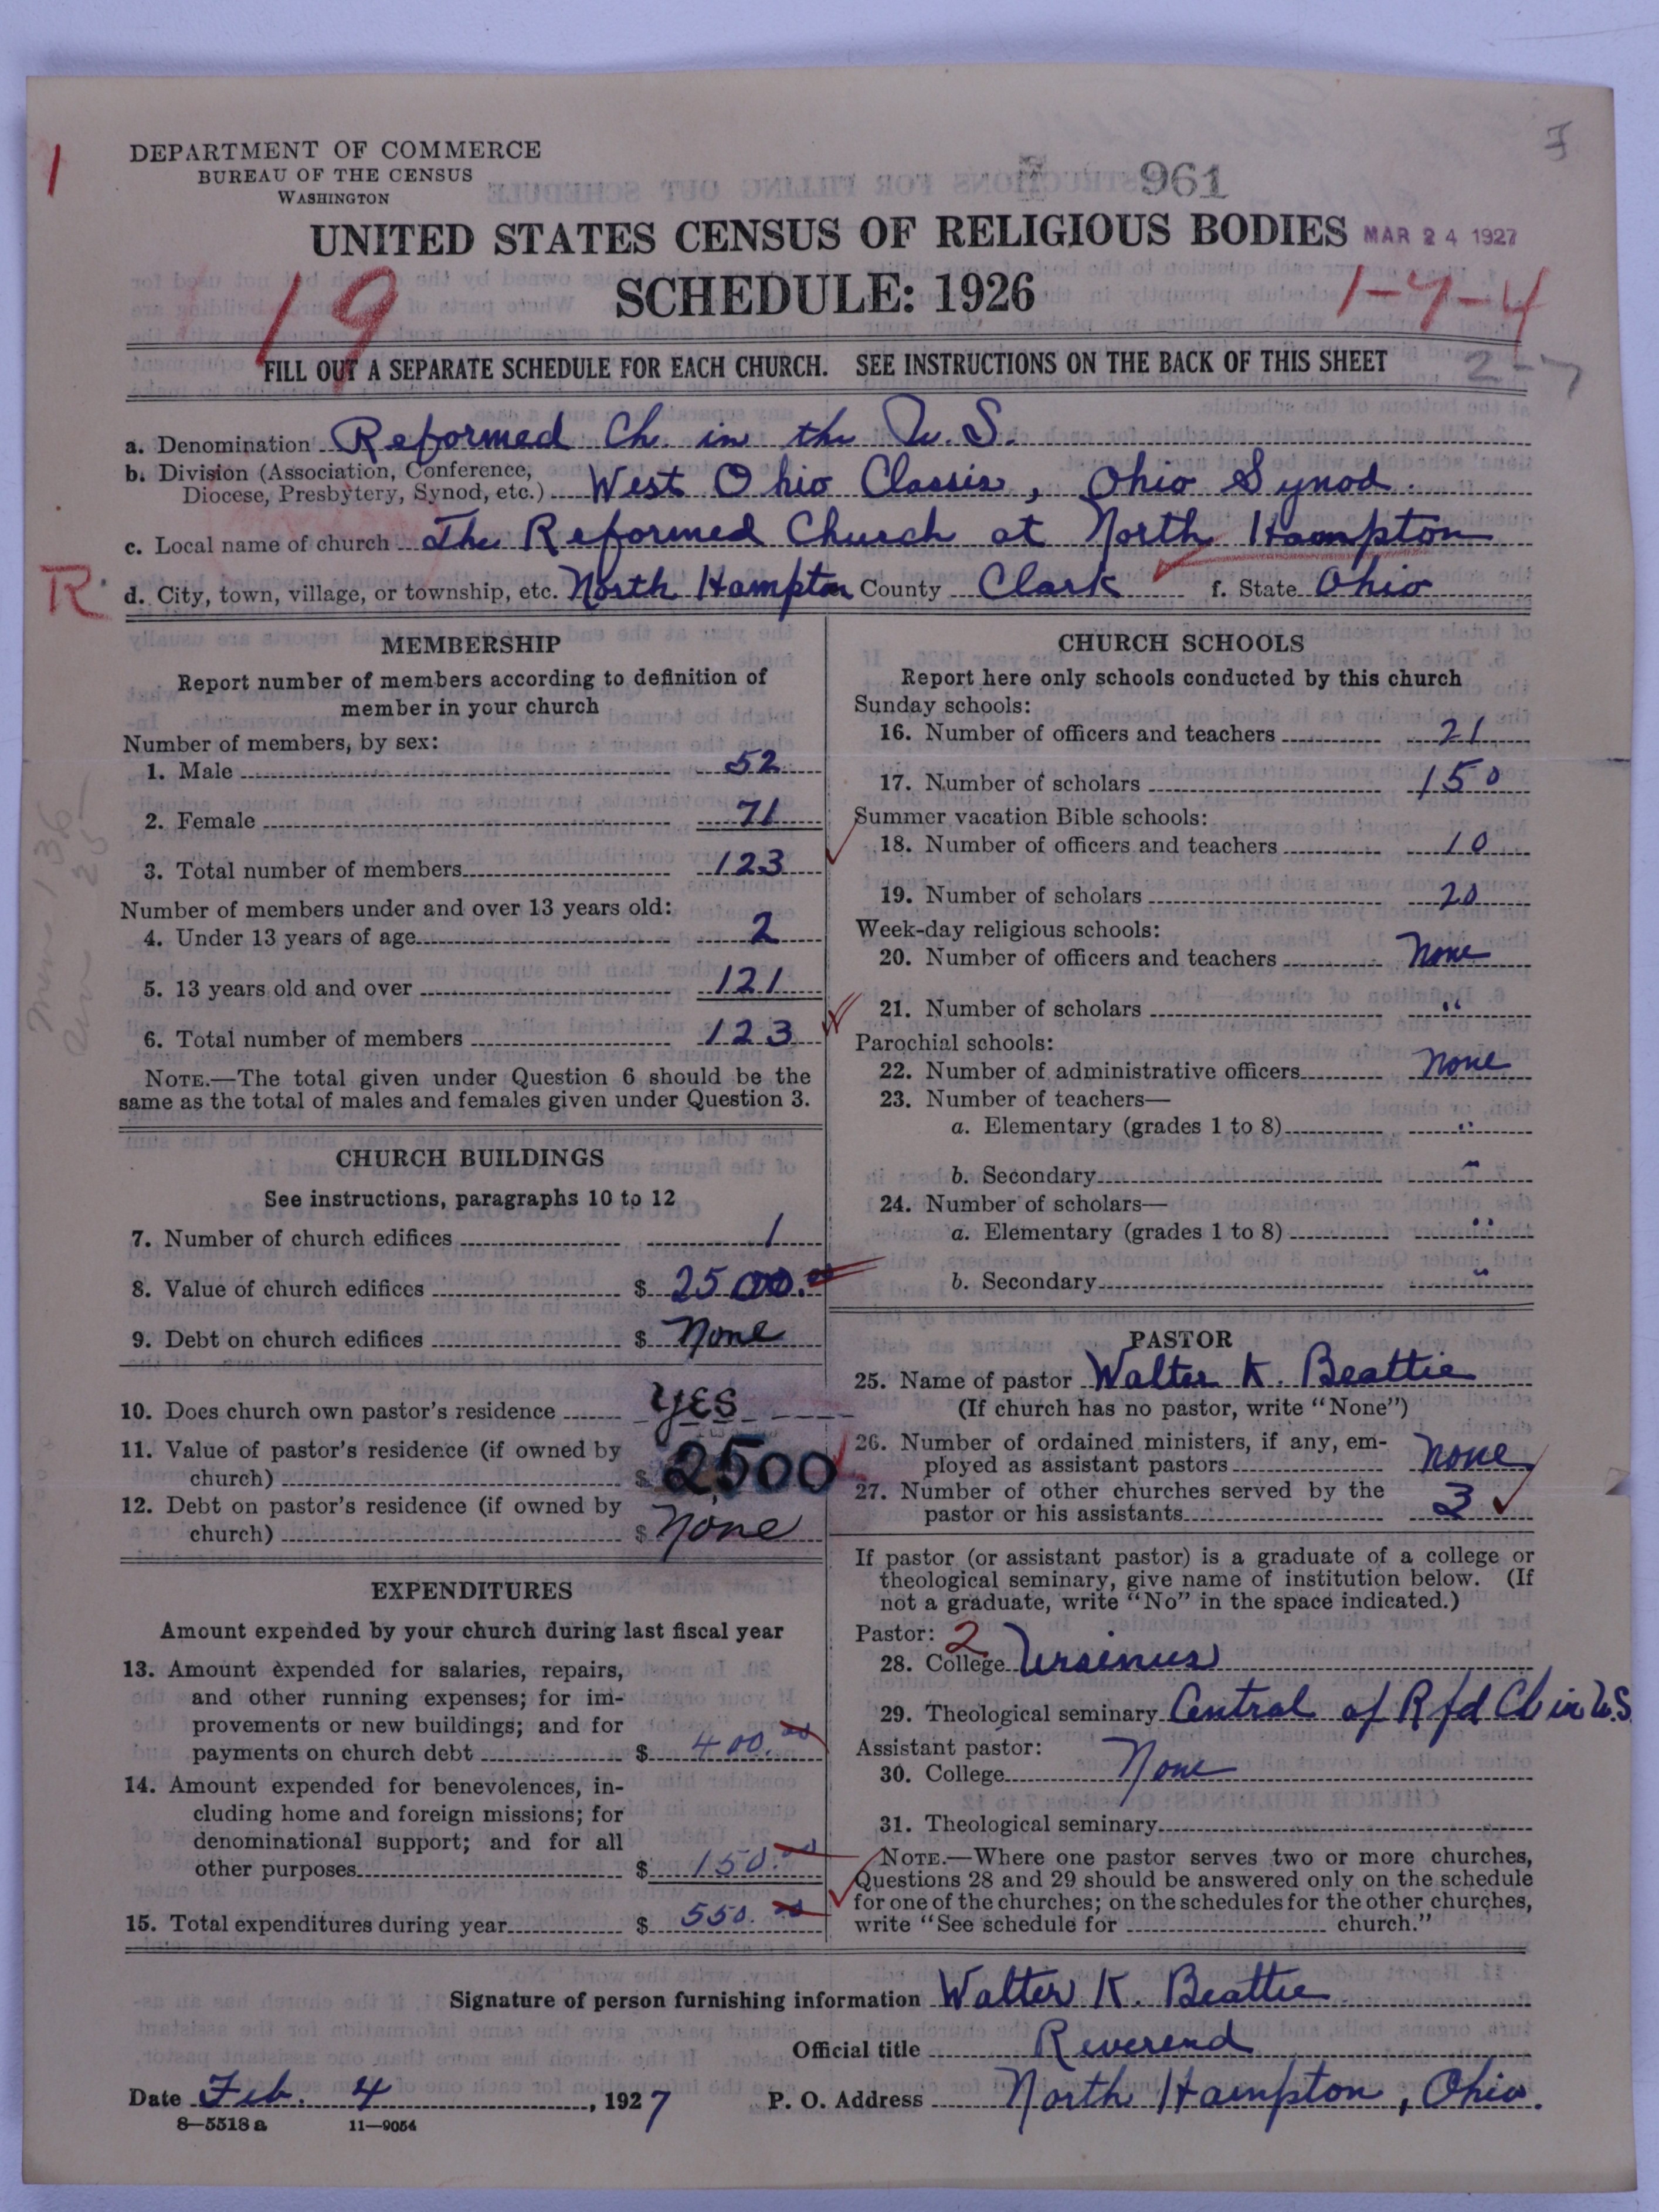 DEPARTMENT OF COMMERCE
BUREAU OF THE CENSUS
WASHINGTON
961
UNITED STATES CENSUS OF RELIGIOUS BODIES MAR 24 1927
19 SCHEDULE: 1926 1-7-4
FILL OUT A SEPARATE SCHEDULE FOR EACH CHURCH. SEE INSTRUCTIONS ON THE BACK OF THIS SHEET 2-7
a. Denomination Reformed Ch. in the U.S.
b. Division (Association, Conference,
Diocese, Presbytery, Synod, etc.) West Ohio Classis, Ohio Synod.
c. Local name of church The Reformed Church at North Hampton
R d. City, town, village, or township, etc. North Hampton County Clark f. State Ohio
MEMBERSHIP
Report number of members according to definition of
member in your church
Number of members, by sex:
1. Male 52
2. Female 71
3. Total number of members 123
Number of members under and over 13 years old:
4. Under 13 years of age 2
5. 13 years old and over 121
6. Total number of members 123
NOTE.—The total given under Question 6 should be the
same as the total of males and females given under Question 3.
CHURCH BUILDINGS
See instructions, paragraphs 10 to 12
7. Number of church edifices 1
8. Value of church edifices $ 2500.00
9. Debt on church edifices $ None
10. Does church own pastor's residence YES
11. Value of pastor's residence (if owned by
church) $ 2500
12. Debt on pastor's residence (if owned by
church) $ None
EXPENDITURES
Amount expended by your church during last fiscal year
13. Amount expended for salaries, repairs,
and other running expenses; for im-
provements or new buildings; and for
payments on church debt $ 400.00
14. Amount expended for benevolences, in-
cluding home and foreign missions; for
denominational support; and for all
other purposes $ 150.00
15. Total expenditures during year $ 550.00
CHURCH SCHOOLS
Report here only schools conducted by this church
Sunday schools:
16. Number of officers and teachers 21
17. Number of scholars 150
Summer vacation Bible schools:
18. Number of officers and teachers 10
19. Number of scholars 20
Week-day religious schools:
20. Number of officers and teachers None
21. Number of scholars "
Parochial schools:
22. Number of administrative officers None
23. Number of teachers—
a. Elementary (grades 1 to 8) "
b. Secondary "
24. Number of scholars—
a. Elementary (grades 1 to 8) "
b. Secondary "
PASTOR
25. Name of pastor Walter K. Beattie
(If church has no pastor, write "None")
26. Number of ordained ministers, if any, em-
ployed as assistant pastors None
27. Number of other churches served by the
pastor or his assistants 3
If pastor (or assistant pastor) is a graduate of a college or
theological seminary, give name of institution below. (If
not a graduate, write "No" in the space indicated.)
Pastor: 2
28. College Ursinus
29. Theological seminary Central of Rfd Ch in U.S.
Assistant pastor:
30. College None
31. Theological seminary
NOTE.—Where one pastor serves two or more churches,
Questions 28 and 29 should be answered only on the schedule
for one of the churches; on the schedules for the other churches,
write "See schedule for church."
Signature of person furnishing information Walter K. Beattie
Official title Reverend
Date Feb. 4, 1927 P. O. Address North Hampton, Ohio.
8—5518 a 11—9054